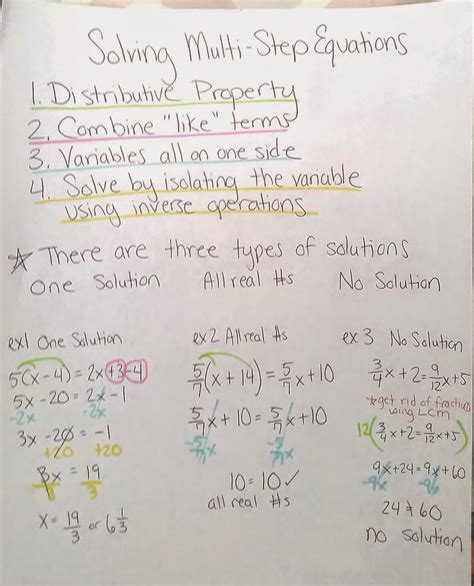 Solving Multi-Step Equations
1. Distributive Property
2. Combine "like" terms
3. Variables all on one side
4. Solve by isolating the variable
using inverse operations
☆ There are three types of solutions
One Solution All real #s No Solution
ex1 One Solution
5(x-4) = 2x+3-4
5x - 20 = 2x - 1
-2x -2x
3x - 20 = -1
+20 +20
3x = 19
3 3
x = 19/3 or 6 1/3
ex2 All real #s
5/7(x+14) = 5/7x+10
5/7x+10 = 5/7x+10
-5/7x -5/7x
10 = 10 ✓
all real #s
ex 3 No Solution
3/4x+2=9/12x+5
*get rid of fractions
using LCM
12(3/4x+2=9/12x+5)
9x+24=9x+60
-9x -9x
24≠60
no solution